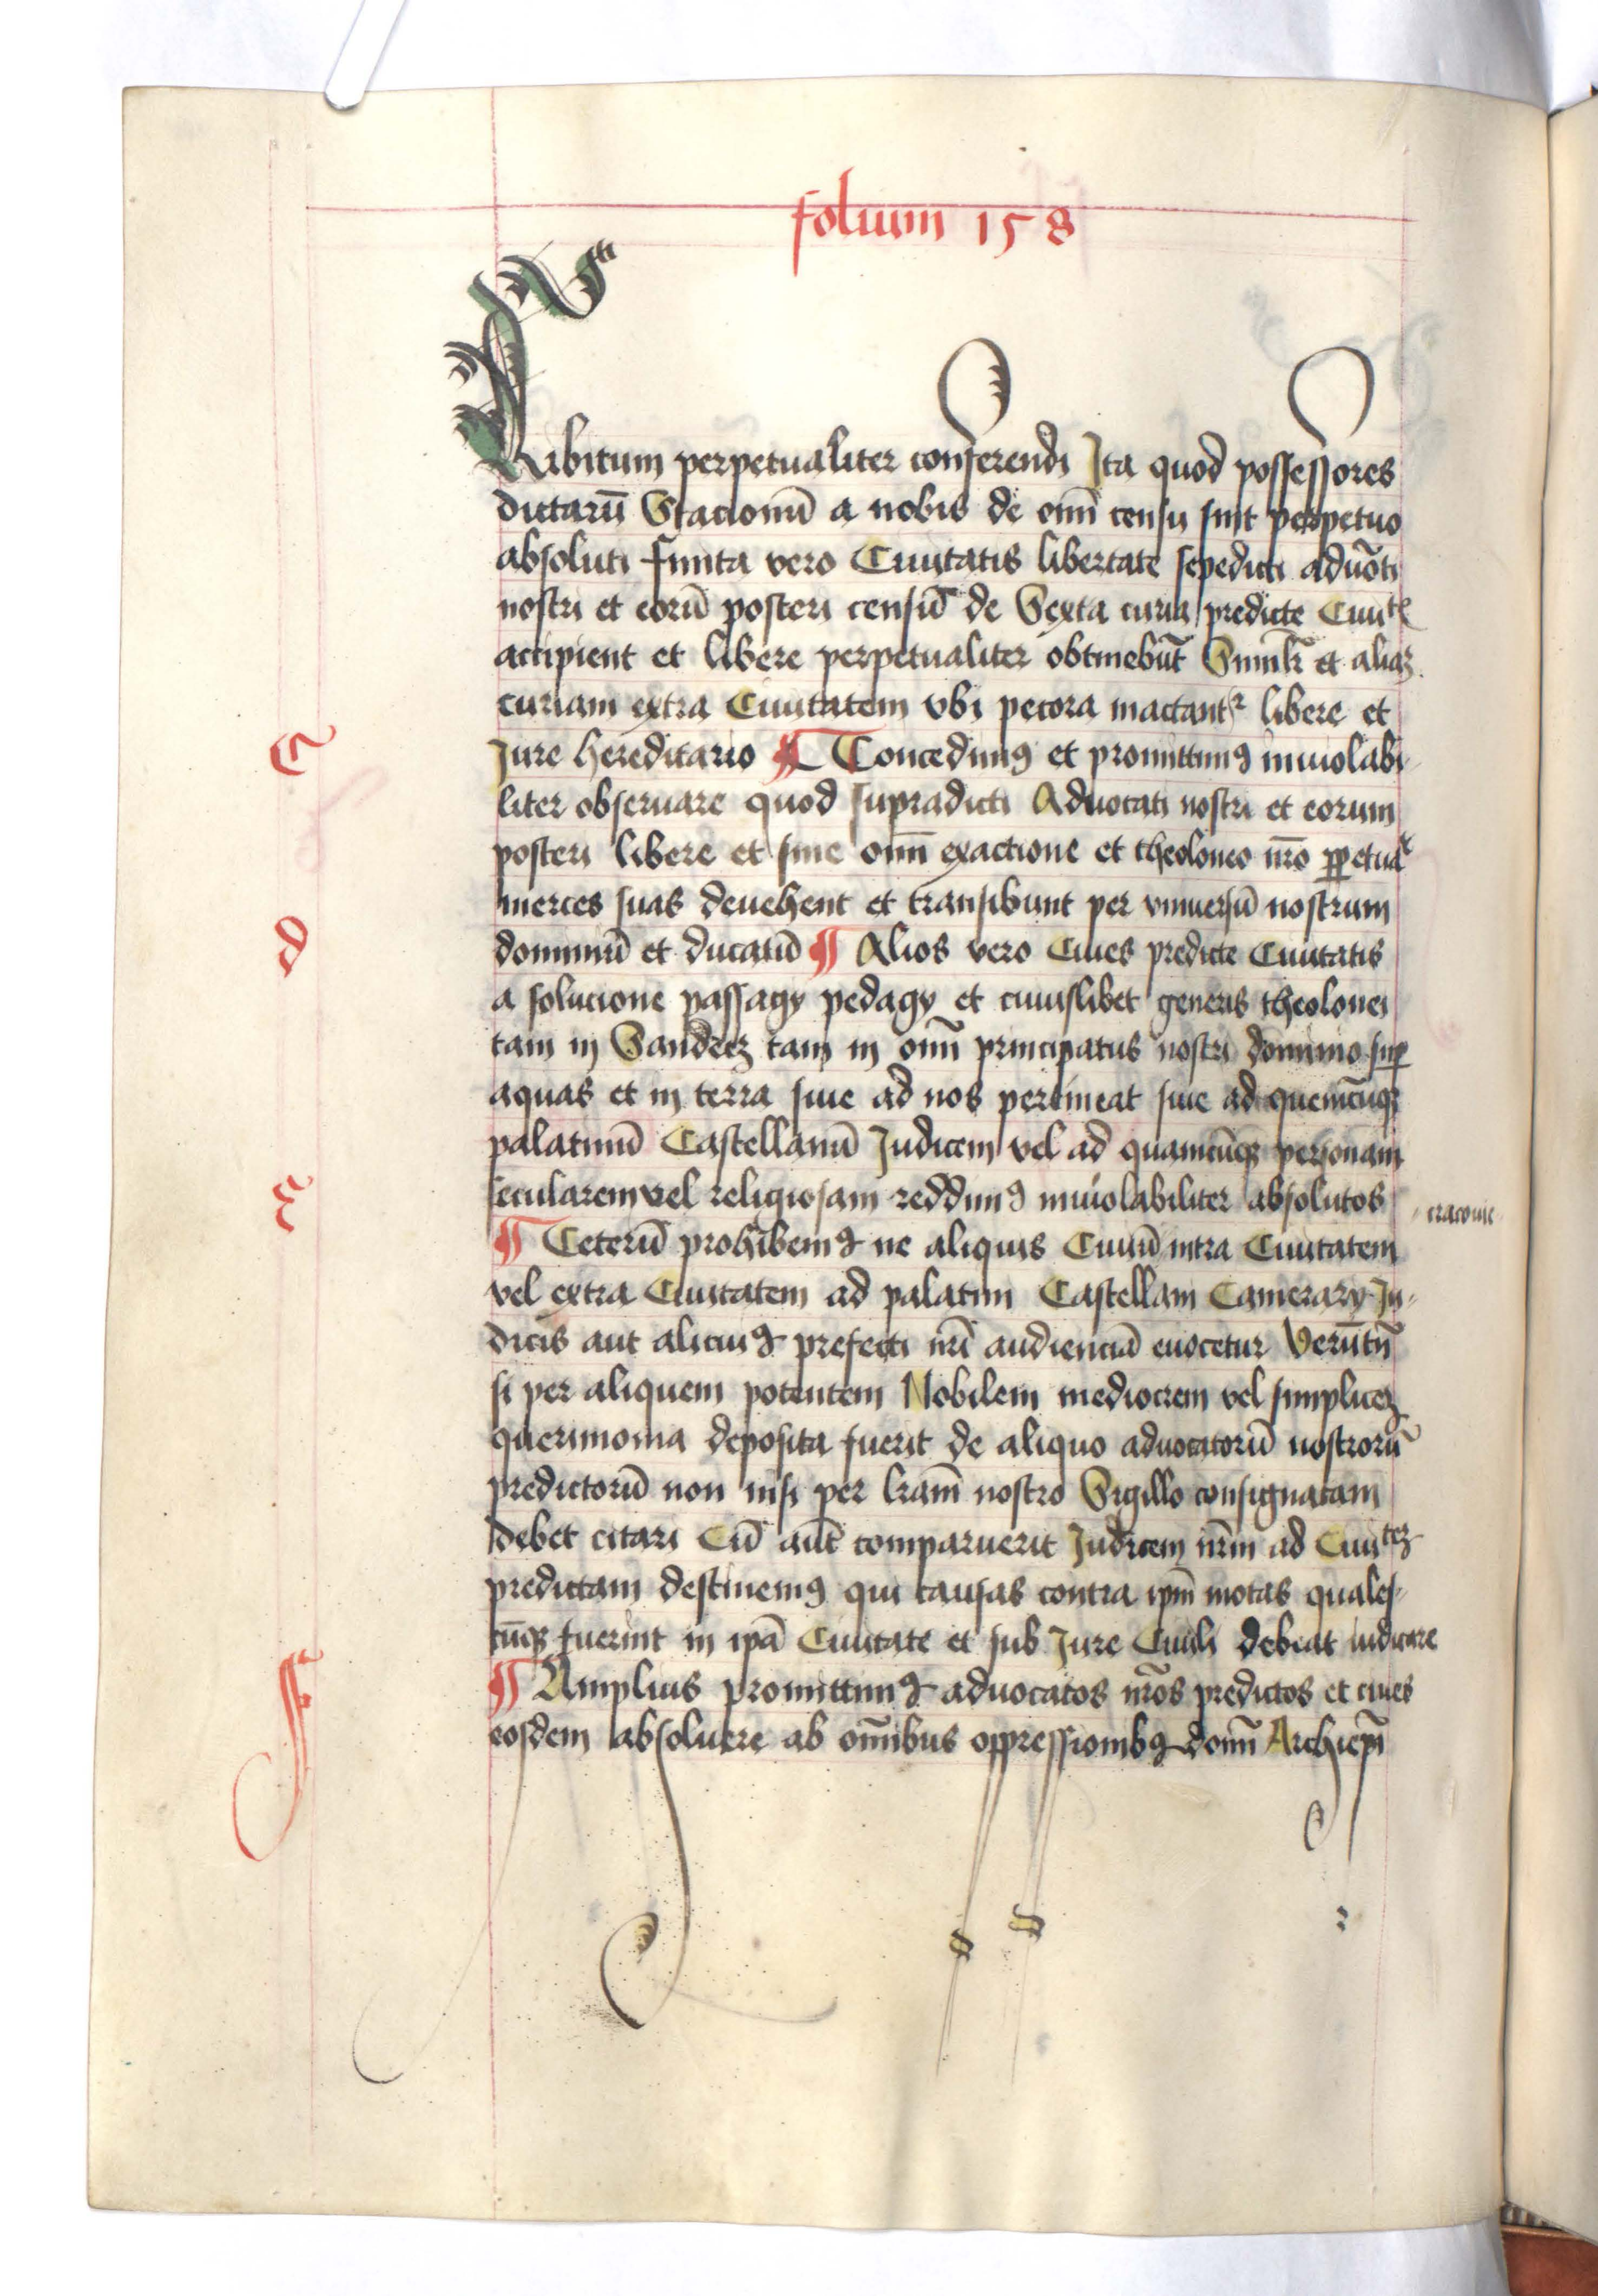 folium 158
Arbitrum perpetualiter conferendi Ita quod possessores
dictarū Stacionū a nobis de om̄i censu sint perpetuo
absoluti finita vero Ciuitatis libertate sepedicti aduōti
nostri et eorū posteri censū de Sexta curia predicte Ciuitꝭ
accipient et libere perpetualiter obtinebūt Simlr̄ et aliaꝫ
curiam extra Ciuitatem vbi pecora mactantᷣ libere et
Jure hereditario ¶ Concedimꝰ et promittimꝰ inuiolabi-
C
liter obseruare quod supradicti Aduocati nostri et eorum
posteri libere et sine om̄i exactione et theoloneo nr̄o ꝑpetue
merces suas deuehent et transibunt per vniuersū nostrum
dominiū et ducatū ¶ Alios vero Ciues predicte Ciuitatis
d
a solucione passagy pedagy et cuiuslibet generis theolonei
tam in Sandecz tam in om̄i principatus nostri dominio suꝑ
aquas et in terra siue ad nos pertineat siue ad quemcūqꝫ
palatinū Castellanū Judicem vel ad quamcūqꝫ personam
secularem vel religiosam reddimꝰ inuiolabiliter absolutos
cracouie
¶ Ceterū prohibemꝰ ne aliquis Ciuiū intra Ciuitatem
e
vel extra Ciuitatem ad palatini Castellani Camerary Ju-
dicis aut alicuiꝰ prefecti nr̄i audienciā euocetur Verūtn̄
si per aliquem potentem Nobilem mediocrem vel simpliceꝫ
querimonia deposita fuerit de aliquo aduocatorū nostrorū
predictorū non nisi per lr̄am nostro Sigillo consignatam
debet citari Cū aūt comparuerit Judicem nr̄m ad Ciuiteꝫ
predictam destinemꝰ qui causas contra ip̄m motas quales-
cūqꝫ fuerint in ip̄a Ciuitate et sub Jure Ciuili debeat iudicare
¶ Amplius promittimꝰ aduocatos nr̄os predictos et ciues
f
eosdem absoluere ab om̄ibus oppressionibꝰ domī Archiep̄i